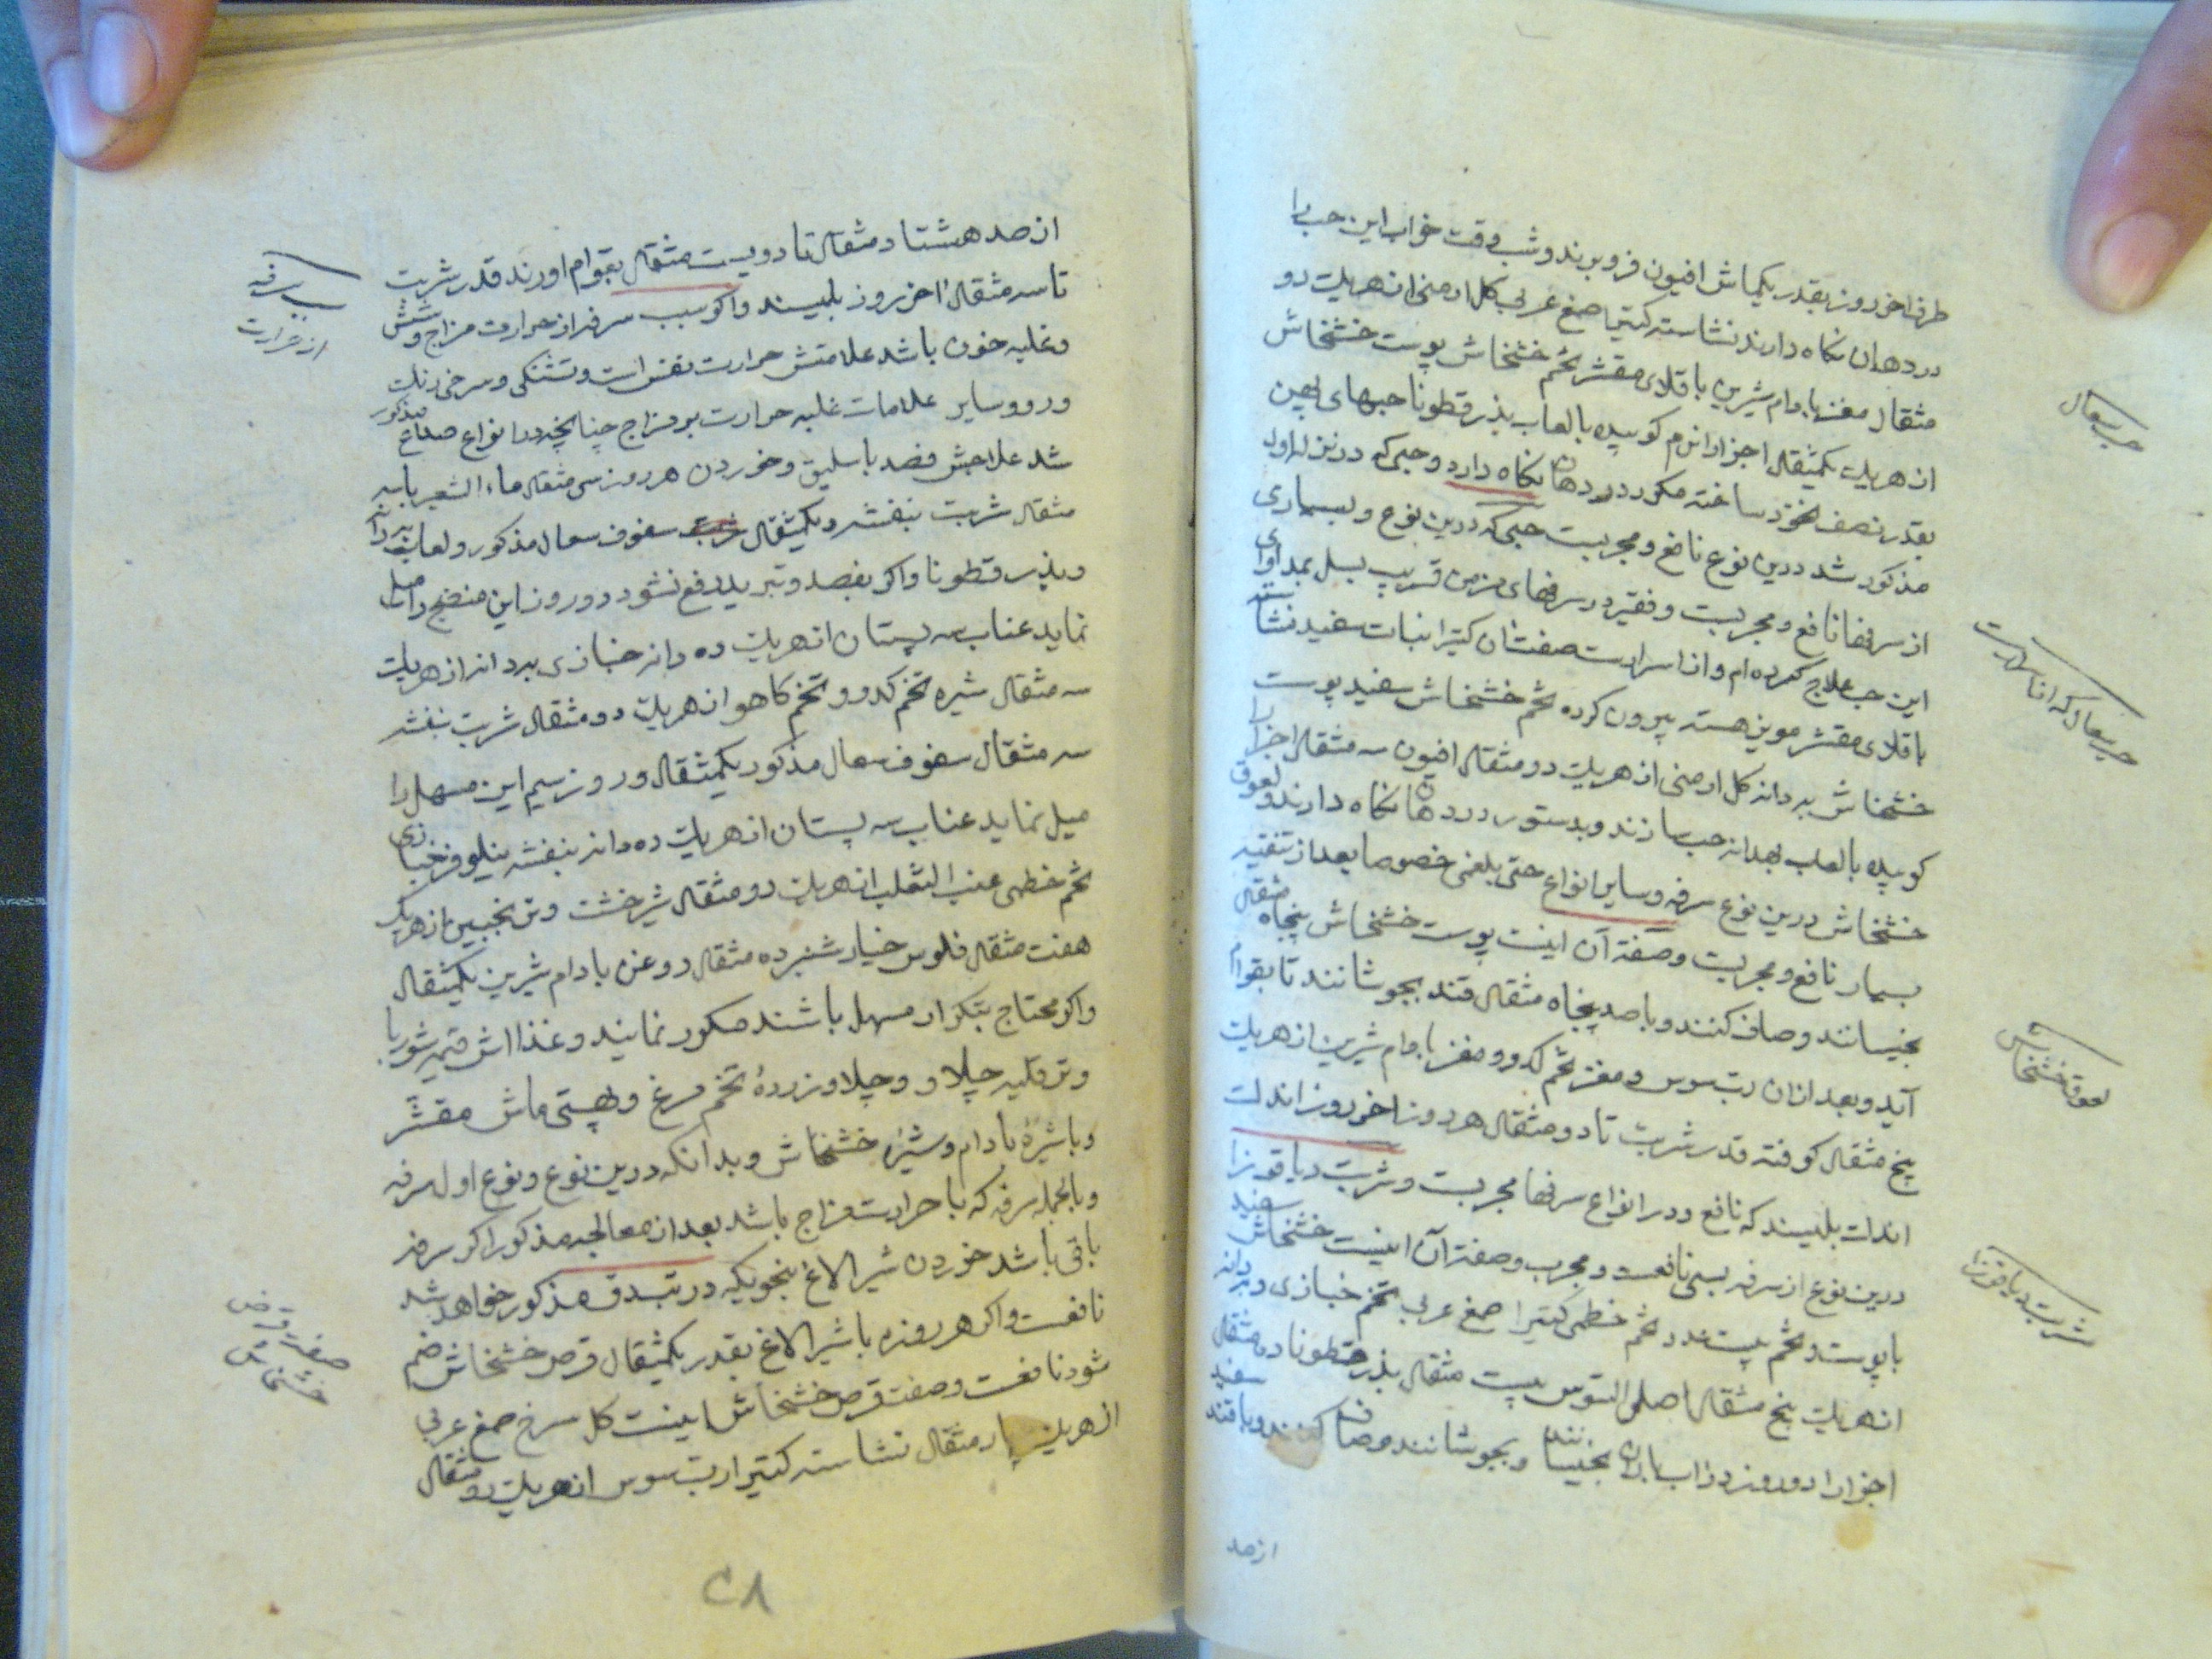 طرف اخر روز بقدر یکماش افیون فرو برند و شب وقت خواب این حب را
در دهان نکاه دارند نشاسته کتیرا صمغ عربی کل ارمنی از هریک دو
مثقال مغز بادام شیرین باقلای مقشر تخم خشخاش پوست خشخاش
از هریک یکمثقال اجزا را نرم کوبیده بالعاب بذر قطونا حبهای پهن
بقدر نصف نخود ساخته مکرر در دهان نکاه دارد و حبی که در نزله اول
مذکور شد درین نوع نافع و مجربست حبی که درین نوع و بسیاری
از سرفها نافع و مجربست و فقیر در سرفهای مزمن قریب بسل بمداوای
این حب علاج کرده ام و از اسرارست صفتش ان کتیرا نبات سفید نشاسته
باقلای مقشر مویز هسته بیرون کرده تخم خشخاش سفید پوست
خشخاش به دانه کل ارمنی از هریک دو مثقال افیون سه مثقال اجزا را
کوبیده بالعاب بهدانه حب سازند و بدستور در دهان نکاه دارند و لعوق
خشخاش درین نوع سرفه و سایر انواع حتی بلغمی خصوصا بعد از تنقیه
بسیار نافع و مجربست و صفة آن اینست پوست خشخاش پنجاه مثقال
بخیسانند و صاف کنند و با صد پنجاه مثقال قند بجوشانند تا بقوام
آید و بعد از ان رب سوس و مغز تخم کدو و مغز بادام شیرین از هریک
پنج مثقال کوفته قدر شربت تا دو مثقال هر روز اخر روز اندک
اندک بلیسند که نافع و در انواع سرفها مجربست و شربت دیاقوزا
درین نوع از سرفه بسی نافعست و مجرب و صفة آن اینست خشخاش سفید
با پوست و تخم بیست عدد تخم خطمی کتیرا صمغ عربی تخم خبازی و بهدانه
از هریک پنج مثقال اصل السوس بیست مثقال بذر قطونا ده مثقال
اجزا را دو روز در اب باران بخیسانند و بجوشانند و صاف کنند و با قند سفید
از صد
حب سعال
حب سعال که از اسرارست
لعوق خشخاش
شربت دیاقوزا
از صد هشتاد مثقال تا دویست مثقال بقوام اورند قدر شربت
تا سه مثقال اخر روز بلیسند و اکر سبب سرفه از حرارت مزاج و شش
و غلبه خون باشد علامتش حرارت نفس است و تشنکی و سرخی رنک
و رو و سایر علامات غلبه حرارت بر مزاج چنانچه در انواع صداع مذکور
شد علاجش فصد باسلیق و خوردن هر روز سی مثقال ماء الشعیر با سه
مثقال شربت بنفشه و یکمثقال سفوف سعال مذکور و لعاب بهدانه
و بذر قطونا و اکر بفصد و تبرید رفع نشود دو روز این منضج را میل
نماید عناب سه پستان از هریک ده دانه خبازی بهدانه از هریک
سه مثقال شیره تخم کدو و تخم کاهو از هریک دو مثقال شربت بنفشه
سه مثقال سفوف سعال مذکور یکمثقال و روز سیم این مسهل را
میل نماید عناب سه پستان از هریک ده دانه بنفشه نیلوفر خبازی
تخم خطمی عنب الثعلب از هریک دو مثقال شیرخشت و ترنجبین از هریک
هفت مثقال فلوس خیار شنبر ده مثقال روغن بادام شیرین یکمثقال
و اکر محتاج بتکرار مسهل باشند مکرر نمایند و غذا اش قیمه شوربا
و تر قلیه چلاو و چلاو زردۀ تخم مرغ و بهستی ماش مقشر
و با شیرۀ بادام و شیرۀ خشخاش و بدانکه درین نوع و نوع اول سرفه
و بالجمله سرفه که با حرارت مزاج باشد بعد از معالجه مذکور اکر سرفه
باقی باشد خوردن شیر الاغ بنحویکه در تب دق مذکور خواهد شد
نافعست و اکر هر روزه با شیر الاغ بقدر یکمثقال قرص خشخاش ضم
شود نافعست و صفت قرص خشخاش اینست کل سرخ صمغ عربی
از هریک چهار مثقال نشاسته کتیرا رب سوس از هریک دو مثقال
سرفه
از حرارت
صفة قرص
خشخاش
۲۸